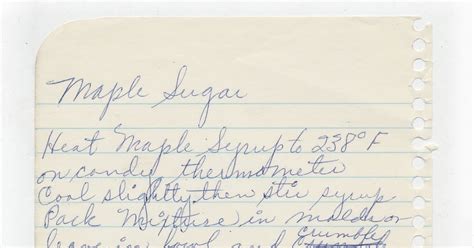 Maple Sugar
Heat Maple Syrup to 238° F
on candy thermometer
Cool slightly then stir syrup
Pack Mixture in molds or
leave in bowl and crumbled